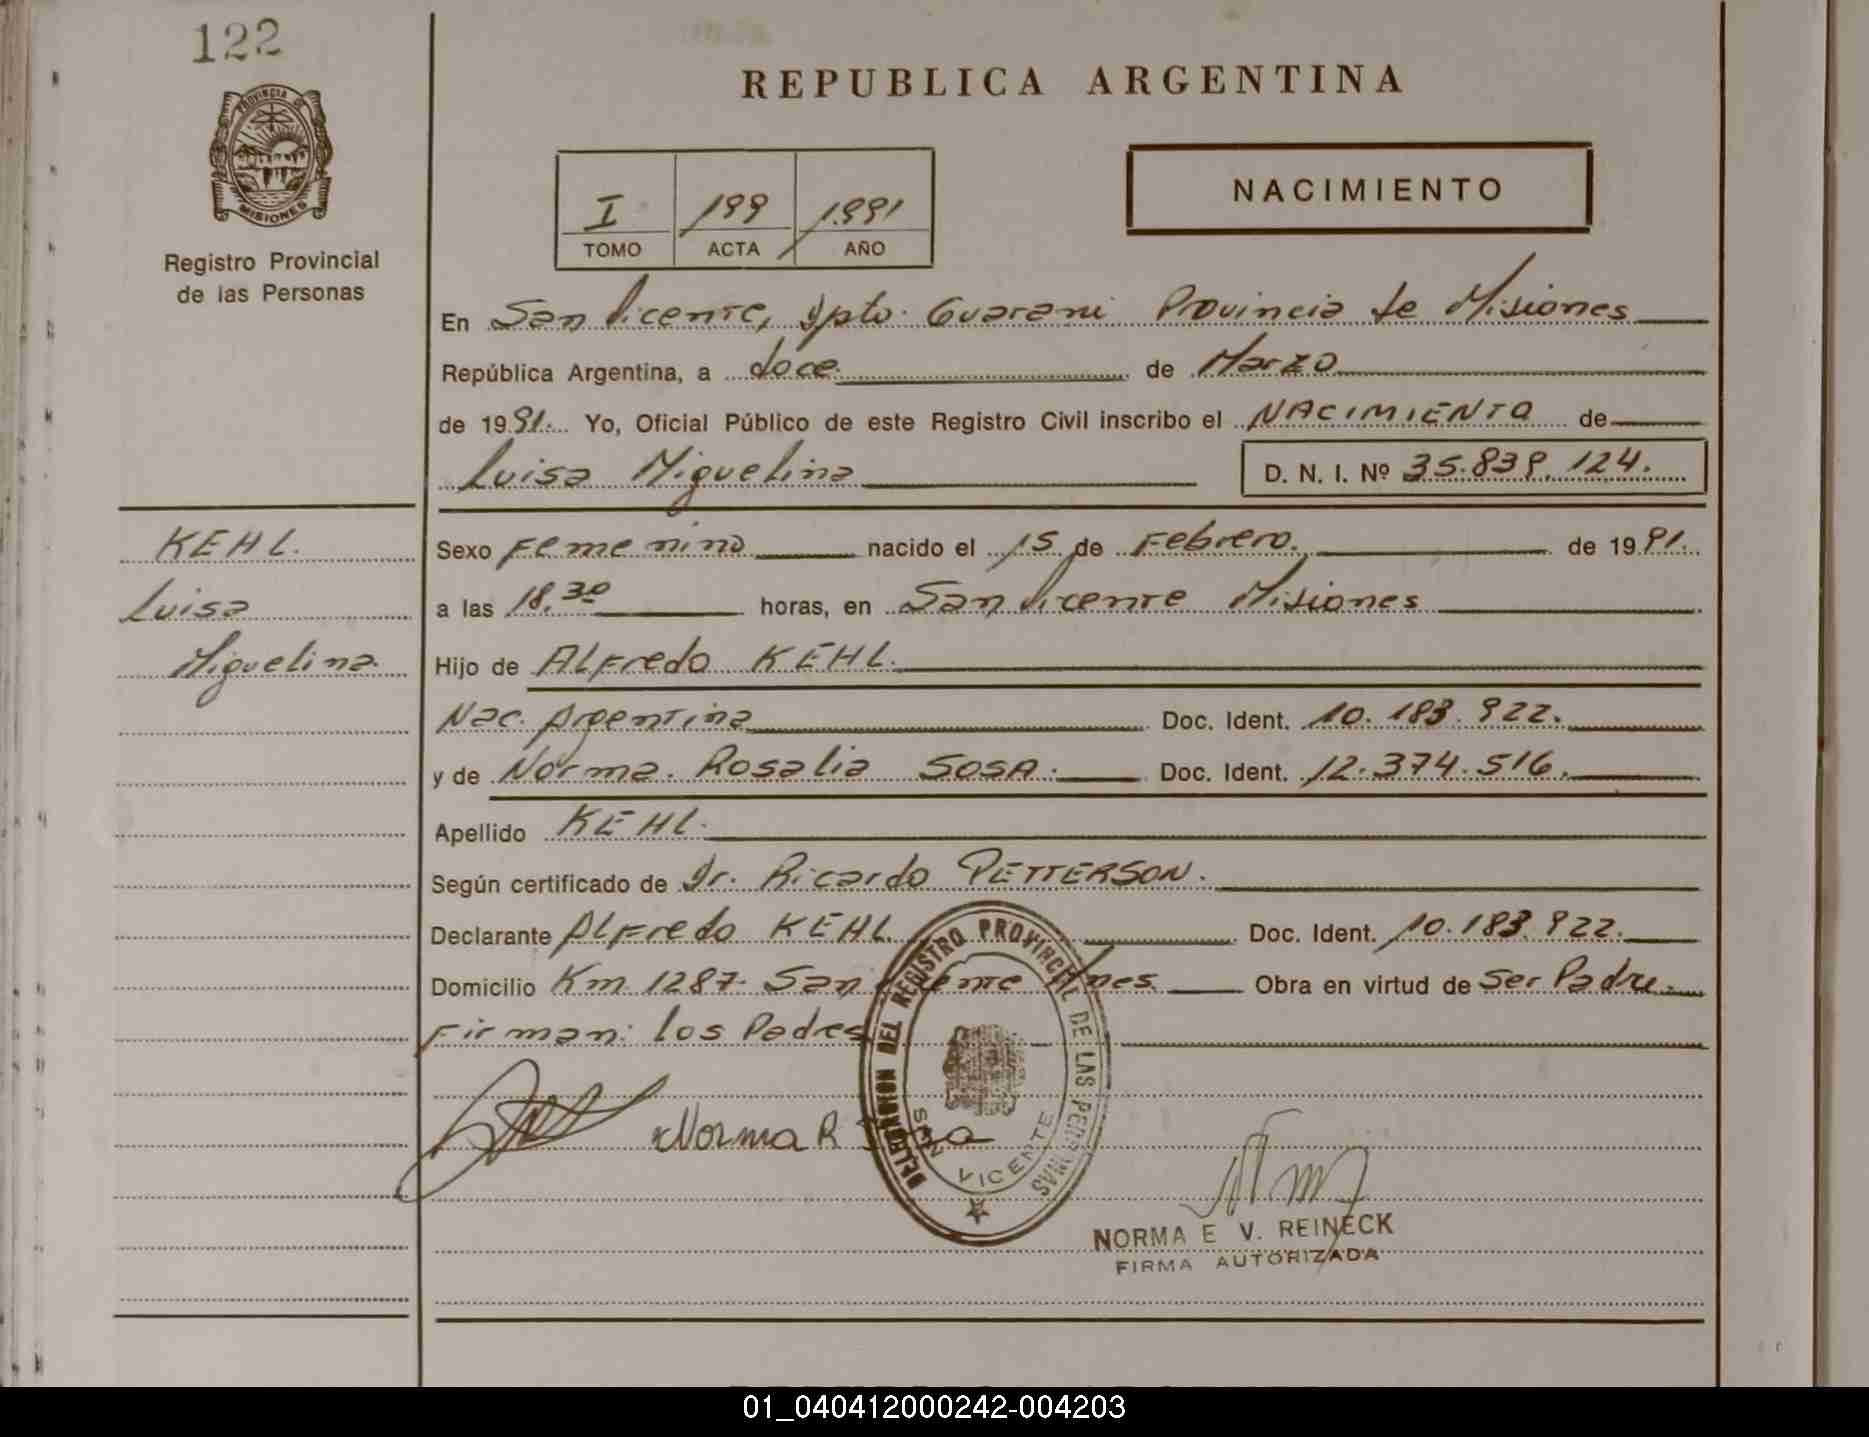 122
PROVINCIA DE
MISIONES
Registro Provincial
de las Personas
REPUBLICA ARGENTINA
NACIMIENTO
I 199 1.991
TOMO ACTA AÑO
En San Vicente, Dpto. Guarani Provincia de Misiones
República Argentina, a doce de Marzo
de 1991. Yo, Oficial Público de este Registro Civil inscribo el NACIMIENTO de
Luisa Miguelina D. N. I. Nº 35.839.124.
KEHL.
Luisa
Miguelina.
Sexo Femenino nacido el 15 de Febrero. de 1991.
a las 18.30 horas, en San Vicente Misiones
Hijo de ALFredo KEHL.
Nac. Argentina Doc. Ident. 10.183.922.
y de Norma. Rosalia SOSA. Doc. Ident. 12.374.516.
Apellido KEHL.
Según certificado de Dr. Ricardo PETTERSON.
Declarante ALFredo KEHL Doc. Ident. 10.183.922.
Domicilio Km 1287. San Vicente Mnes. Obra en virtud de Ser Padre.
Firman: Los Padres
Norma R Sosa
DELEGACION DEL REGISTRO PROVINCIAL DE LAS PERSONAS
SAN VICENTE
NORMA E V. REINECK
FIRMA AUTORIZADA
01_040412000242-004203